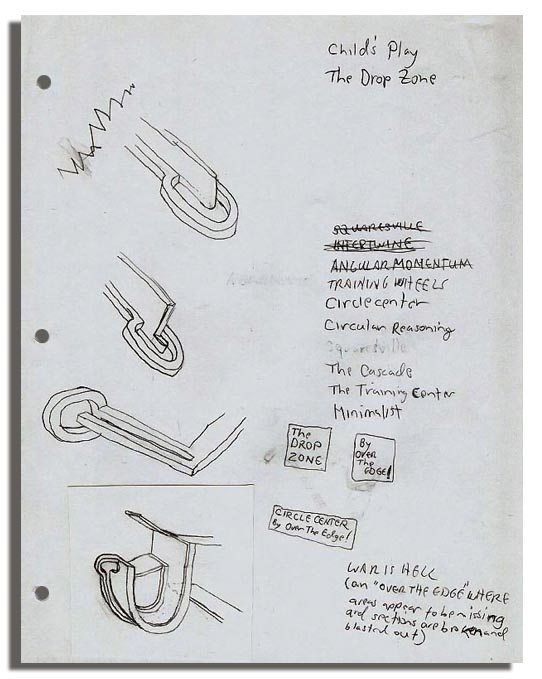 Child's Play
The Drop Zone
SQUARESVILLE
INTERTWINE
ANGULAR MOMENTUM
TRAINING WHEELS
Circlecenter
Circular Reasoning
Squaresville
The Cascade
The Training Center
Minimalist
The
DROP
ZONE
By
OVER
The
EDGE!
CIRCLE CENTER
By Over The Edge!
WAR IS HELL
(an "OVER THE EDGE" WHERE
areas appear to be missing
and sections are broken and
blasted out)